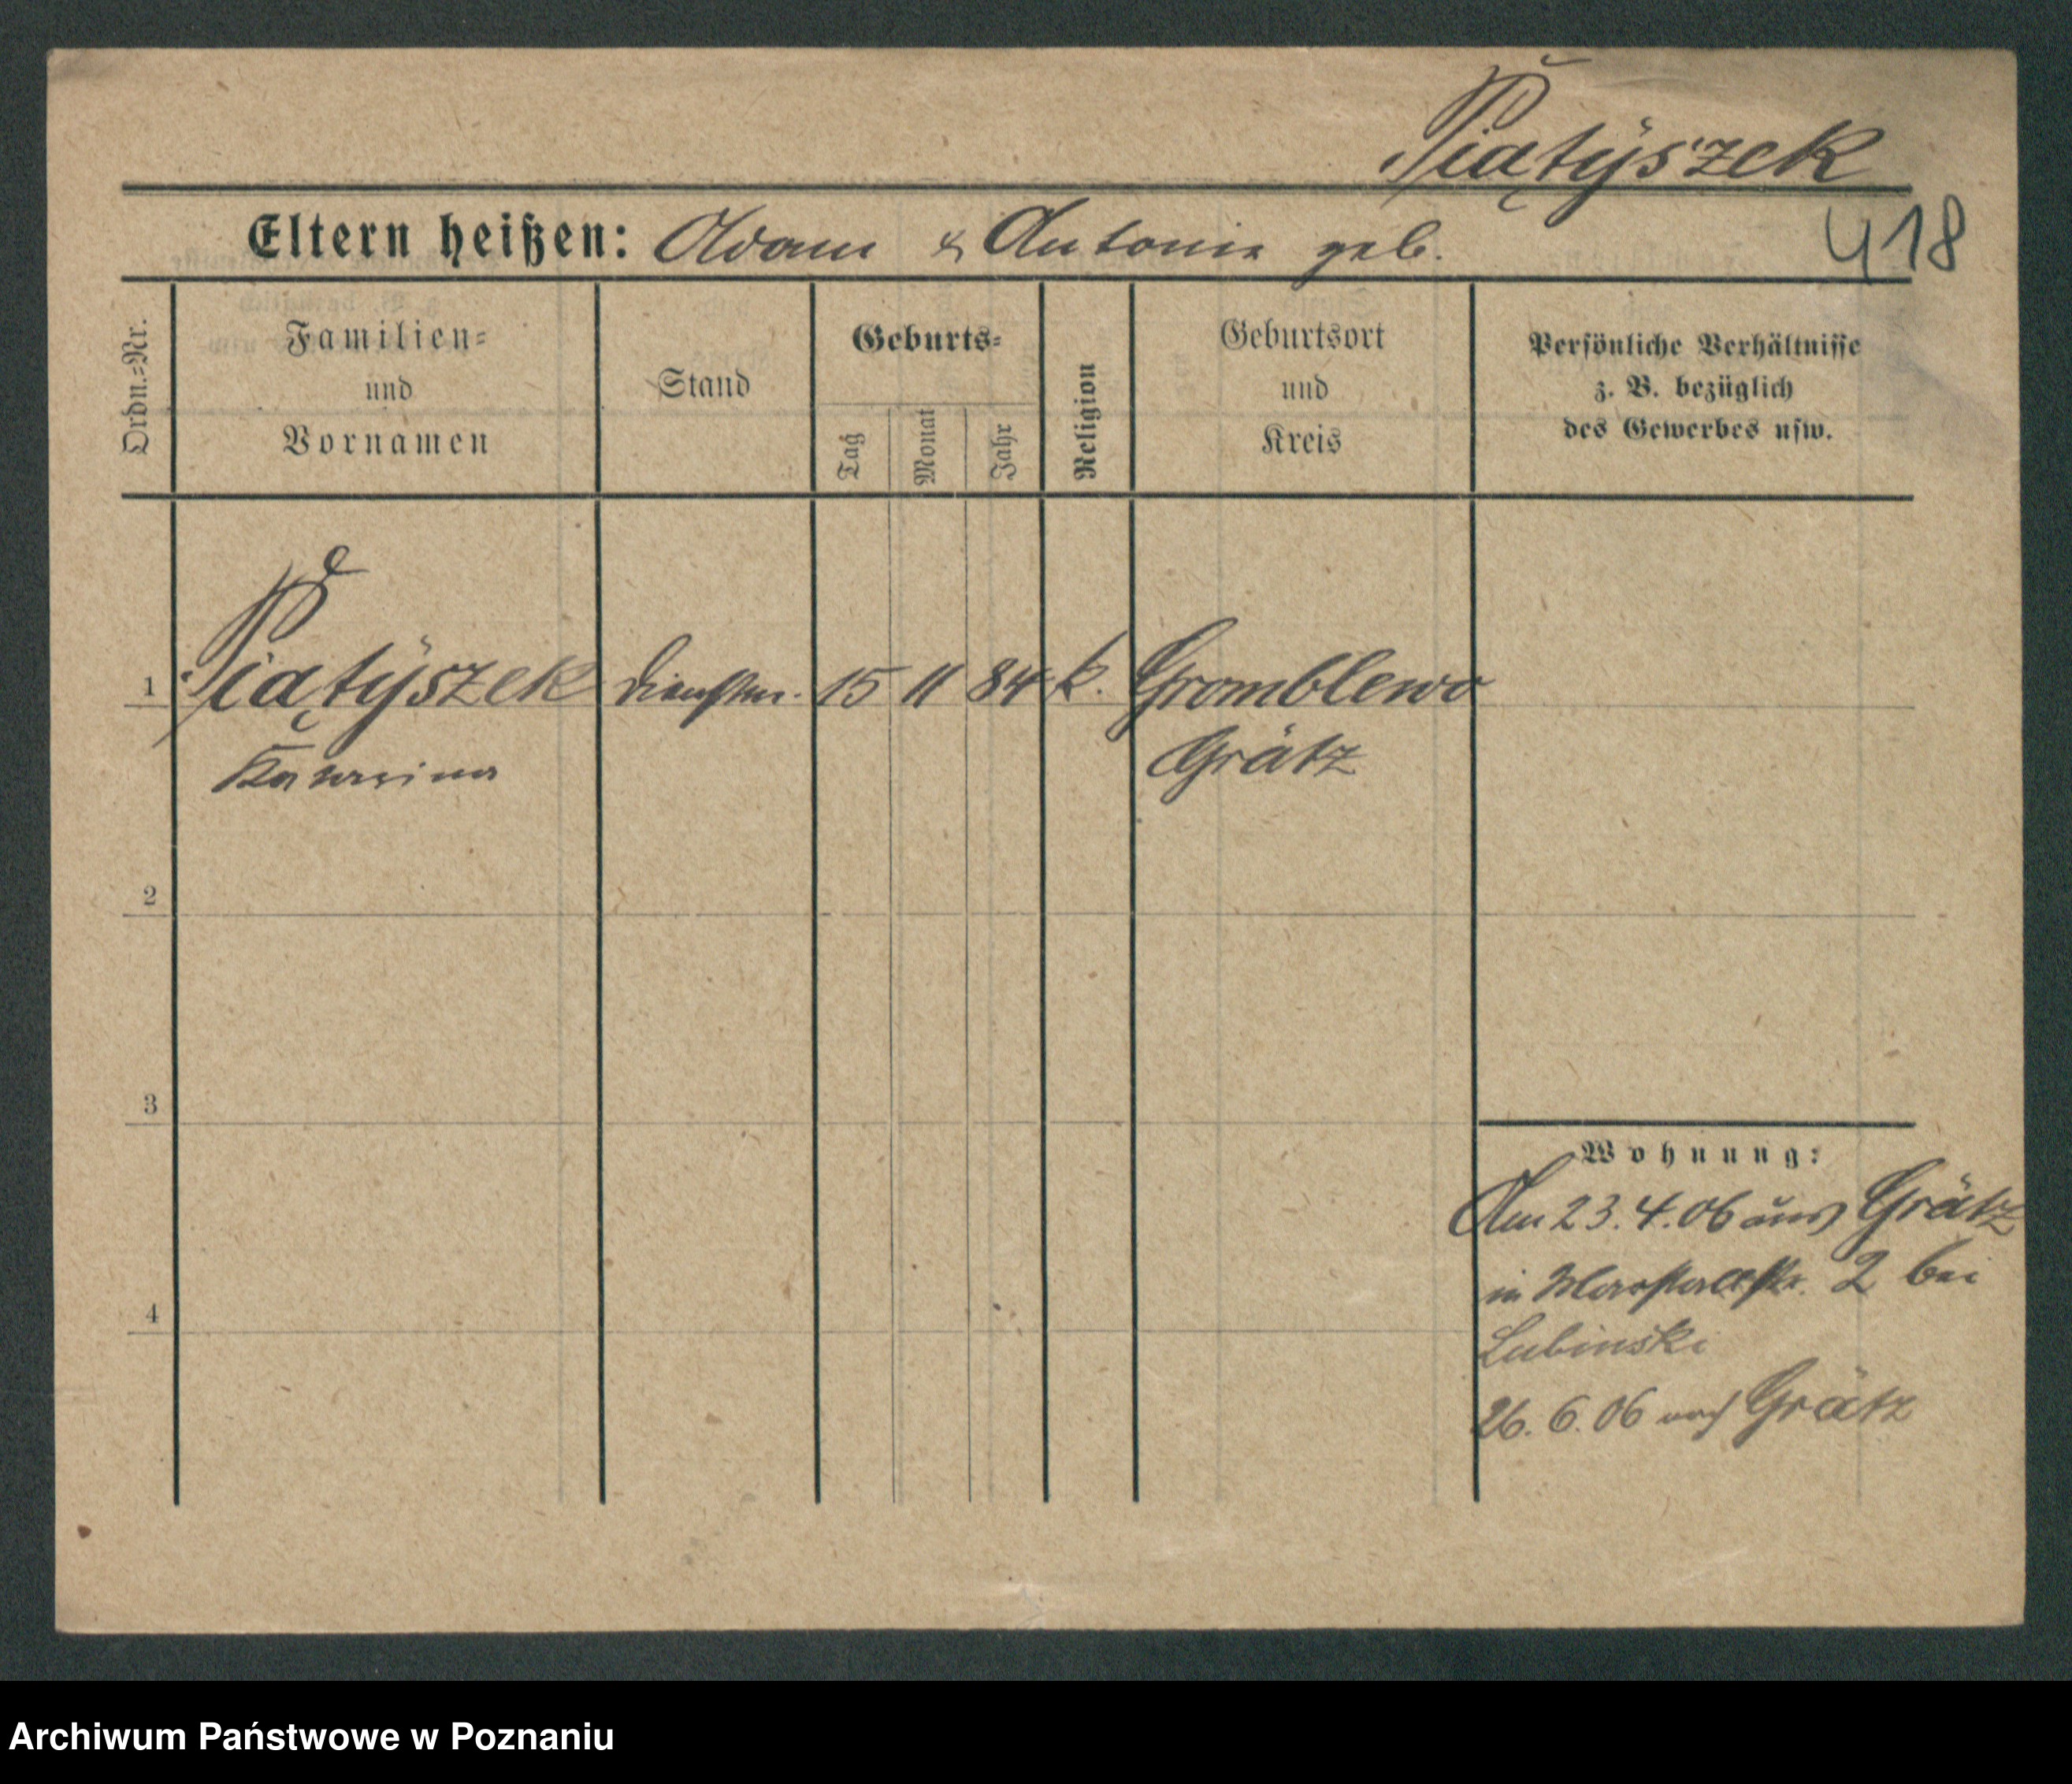 Piątyszek
Eltern heißen: Adam & Antonie geb.
418
Ordn.-Nr.
Familien-
und
Vornamen
Stand
Geburts-
Tag
Monat
Jahr
Religion
Geburtsort
und
Kreis
Persönliche Verhältnisse
z. B. bezüglich
des Gewerbes usw.
1 Piątyszek Dienstm. 15 11 84 k. Gromblewo
Grätz
2
3
4
Wohnung:
Am 23.4.06 aus Grätz
in Marstallstr. 2 bei
Lubinski
26.6.06 nach Grätz
Archiwum Państwowe w Poznaniu